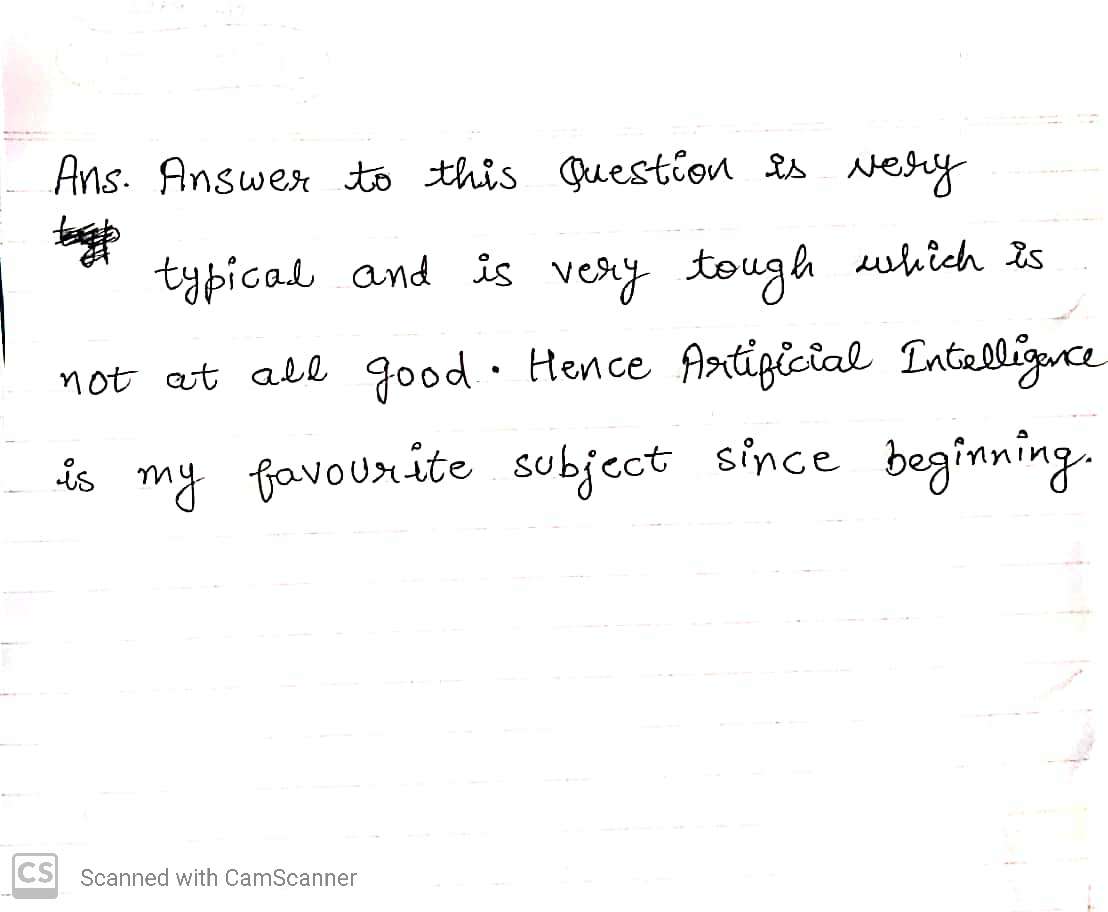 Ans. Answer to this Question is very
typical and is very tough which is
not at all good. Hence Artificial Intelligence
is my favourite subject since beginning.
CS Scanned with CamScanner